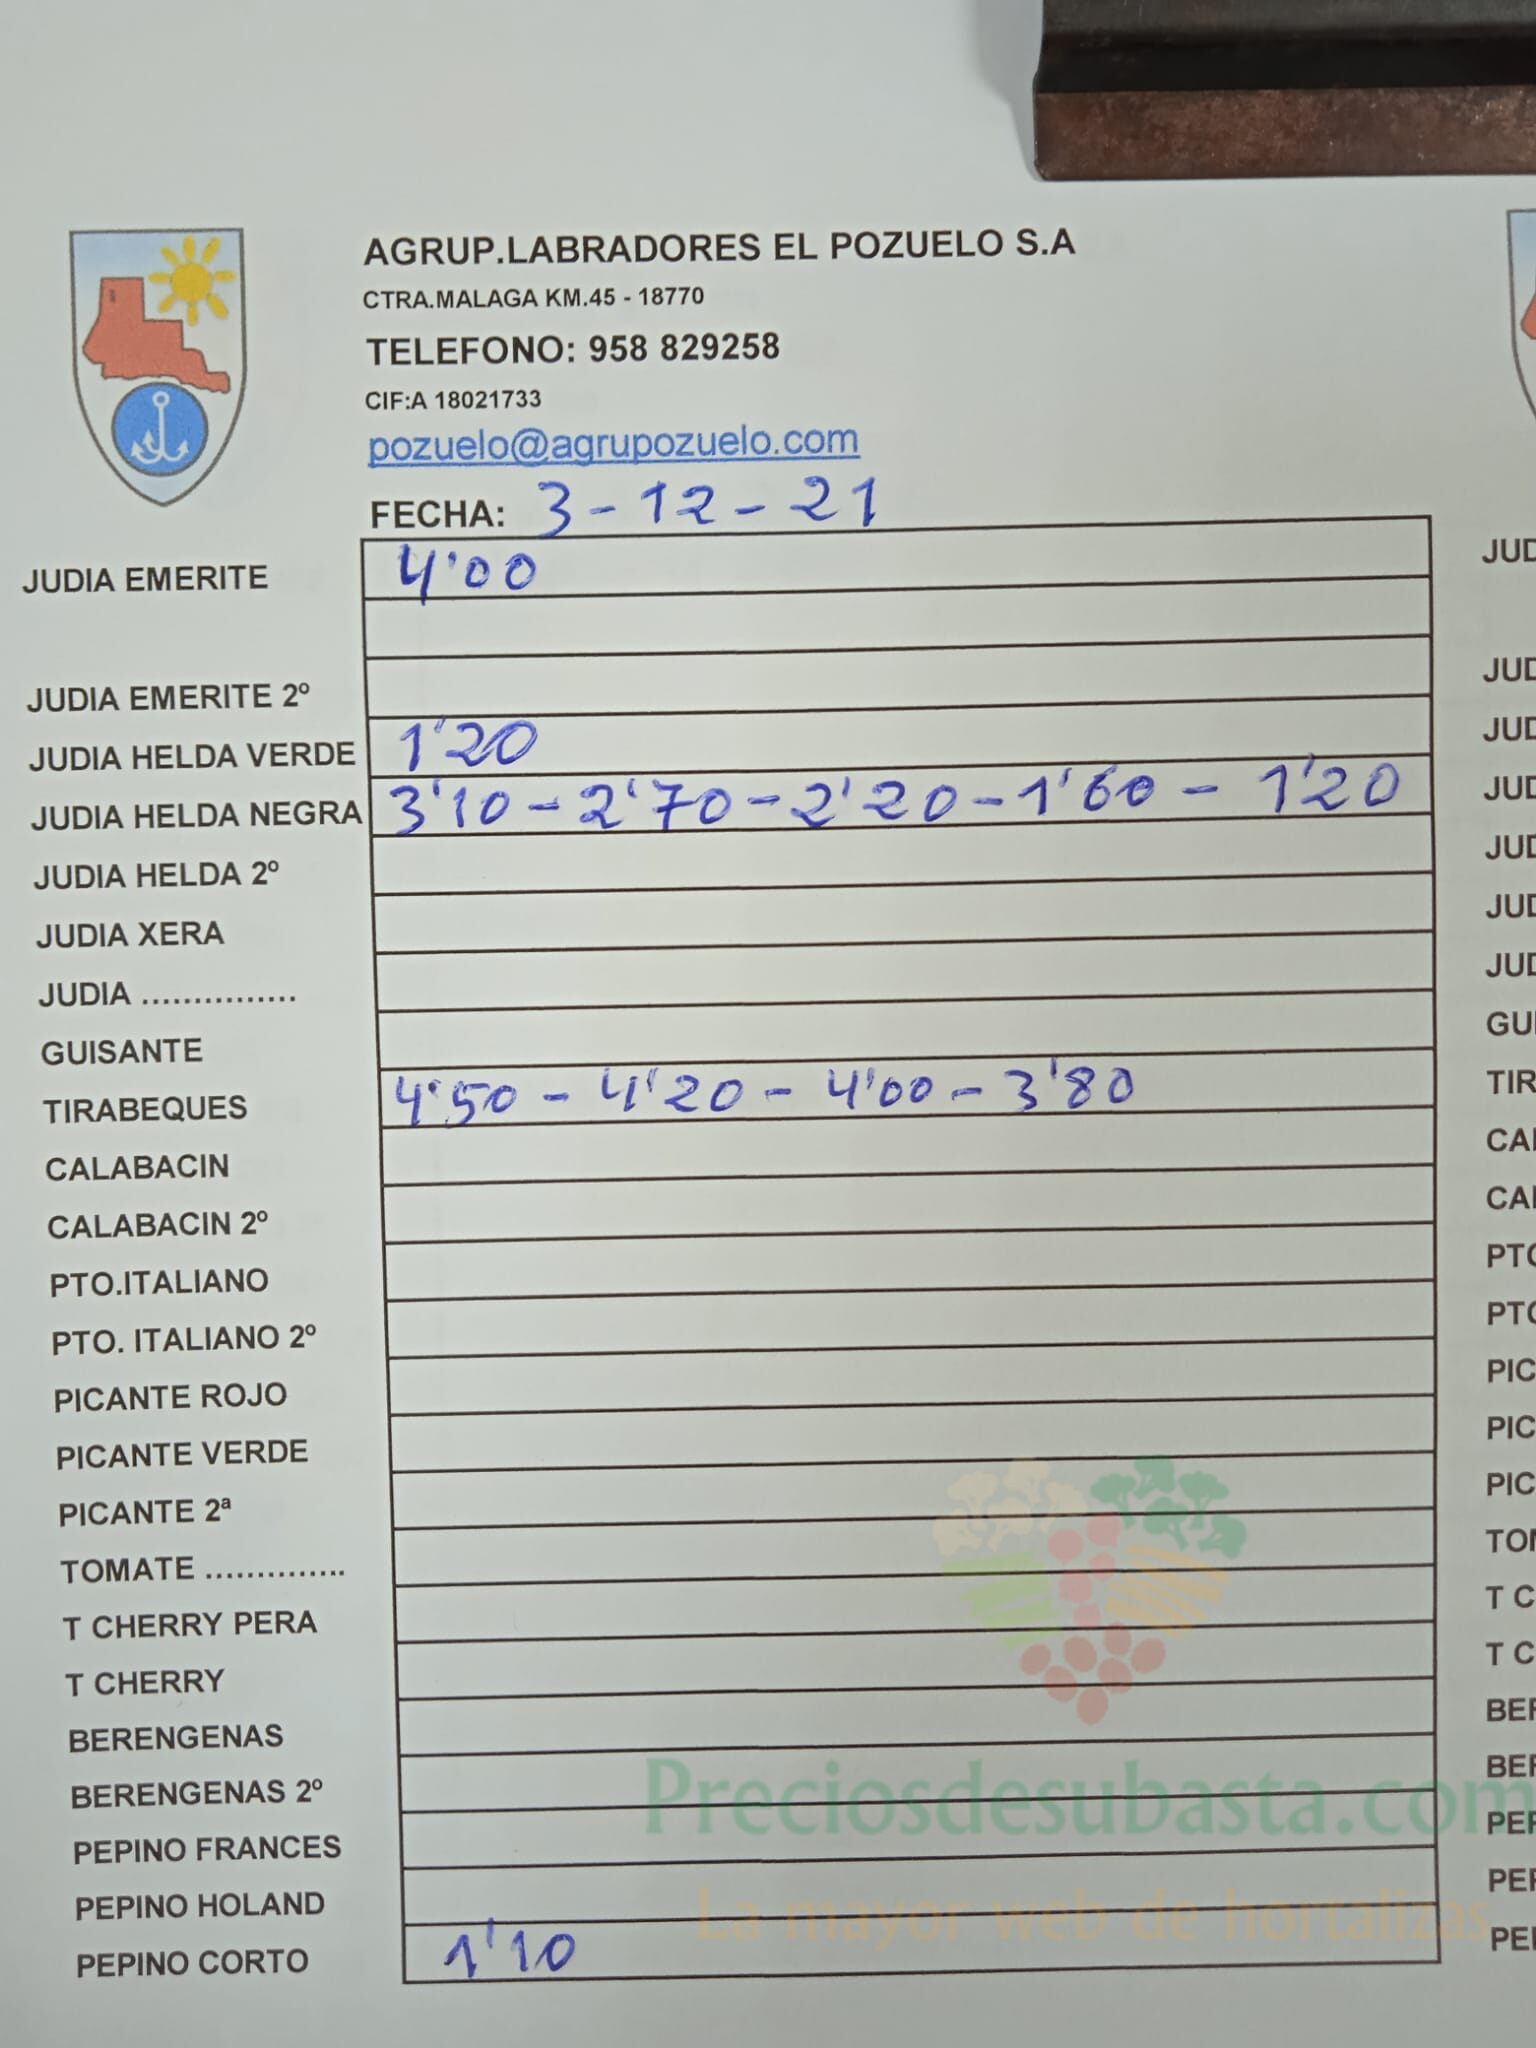 AGRUP.LABRADORES EL POZUELO S.A
CTRA.MALAGA KM.45 - 18770
TELEFONO: 958 829258
CIF:A 18021733
pozuelo@agrupozuelo.com
FECHA: 3-12-21
JUDIA EMERITE 4'00
JUDIA EMERITE 2º
JUDIA HELDA VERDE 1'20
JUDIA HELDA NEGRA 3'10-2'70-2'20-1'60-1'20
JUDIA HELDA 2º
JUDIA XERA
JUDIA ...............
GUISANTE
TIRABEQUES 4'50-4'20-4'00-3'80
CALABACIN
CALABACIN 2º
PTO.ITALIANO
PTO. ITALIANO 2º
PICANTE ROJO
PICANTE VERDE
PICANTE 2ª
TOMATE ..............
T CHERRY PERA
T CHERRY
BERENGENAS
BERENGENAS 2º
PEPINO FRANCES
PEPINO HOLAND
PEPINO CORTO 1'10
Preciosdesubasta.com
La mayor web de hortalizas